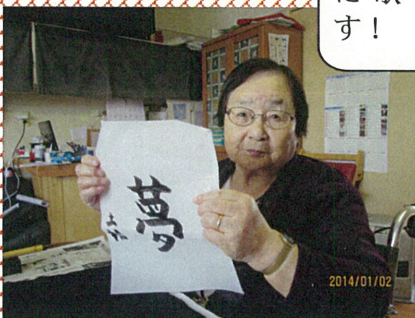 す！
夢
2014/01/02